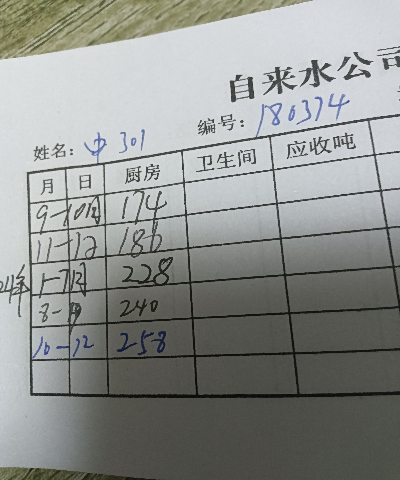 自来水公司
姓名: 中301 编号: 180374
月 日 厨房 卫生间 应收吨
9-10月 174
11-12 186
1-7月 228
8-9 240
10-12 258